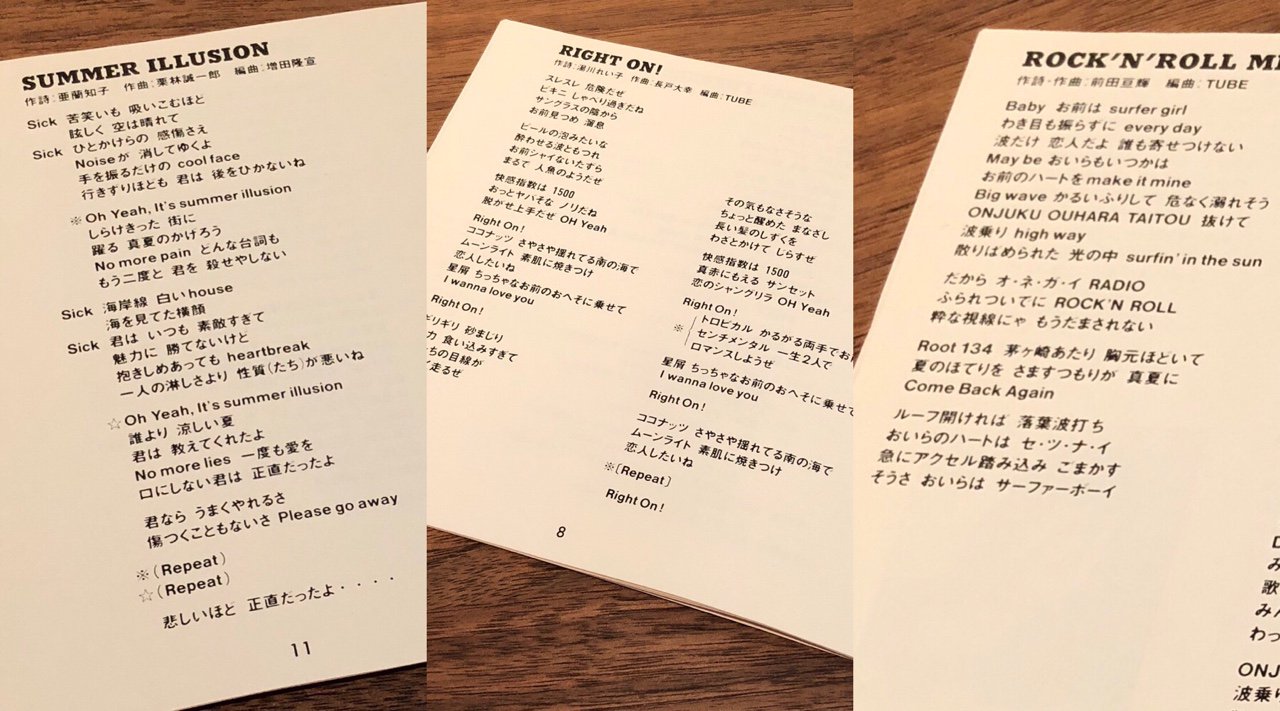 SUMMER ILLUSION
作詩:亜蘭知子 作曲:栗林誠一郎 編曲:増田隆宣
Sick 苦笑いも 吸いこむほど
眩しく 空は晴れて
Sick ひとかけらの 感傷さえ
Noiseが 消してゆくよ
手を振るだけの cool face
行きずりほども 君は 後をひかないね
※Oh Yeah, It's summer illusion
しらけきった 街に
躍る 真夏のかげろう
No more pain どんな台詞も
もう二度と 君を 殺せやしない
Sick 海岸線 白いhouse
海を見てた横顔
Sick 君は いつも 素敵すぎて
魅力に 勝てないけど
抱きしめあっても heartbreak
一人の淋しさより 性質(たち)が悪いね
☆Oh Yeah, It's summer illusion
誰より 涼しい夏
君は 教えてくれたよ
No more lies 一度も愛を
口にしない君は 正直だったよ
君なら うまくやれるさ
傷つくこともないさ Please go away
※(Repeat)
☆(Repeat)
悲しいほど 正直だったよ・・・・
11
RIGHT ON!
作詩:湯川れい子 作曲:長戸大幸 編曲:TUBE
スレスレ 危険だぜ
ビキニ しゃべり過ぎだね
サングラスの陰から
お前見つめ 溜息
ビールの泡みたいな
酔わせる波ともつれ
お前シャイないたずら
まるで 人魚のようだぜ
快感指数は 1500
おっとヤバそな ノリだね
脱がせ上手だぜ OH Yeah
Right On!
ココナッツ さやさや揺れてる南の海で
ムーンライト 素肌に焼きつけ
恋人したいね
星屑 ちっちゃなお前のおへそに乗せて
I wanna love you
Right On!
ギリギリ 砂まじり
カ 食い込みすぎて
ちの目線が
走るぜ
その気もなさそうな
ちょっと醒めた まなざし
長い髪のしずくを
わざとかけて じらすぜ
快感指数は 1500
真赤にもえる サンセット
恋のシャングリラ OH Yeah
Right On!
※ トロピカル かるがる両手でお
センチメンタル 一生2人で
ロマンスしようぜ
星屑 ちっちゃなお前のおへそに乗せて
I wanna love you
Right On!
ココナッツ さやさや揺れてる南の海で
ムーンライト 素肌に焼きつけ
恋人したいね
※〔Repeat〕
Right On!
8
ROCK'N'ROLL M
作詩・作曲:前田亘輝 編曲:TUBE
Baby お前は surfer girl
わき目も振らずに every day
波だけ 恋人だよ 誰も寄せつけない
May be おいらもいつかは
お前のハートをmake it mine
Big wave かるいふりして 危なく溺れそう
ONJUKU OUHARA TAITOU 抜けて
波乗り high way
散りばめられた 光の中 surfin' in the sun
だから オ・ネ・ガ・イ RADIO
ふられついでに ROCK'N ROLL
粋な視線にゃ もうだまされない
Root 134 茅ヶ崎あたり 胸元ほどいて
夏のほてりを さますつもりが 真夏に
Come Back Again
ルーフ開ければ 落葉波打ち
おいらのハートは セ・ツ・ナ・イ
急にアクセル踏み込み ごまかす
そうさ おいらは サーファーボーイ
み
歌
みん
わっ
ONJ
波乗り